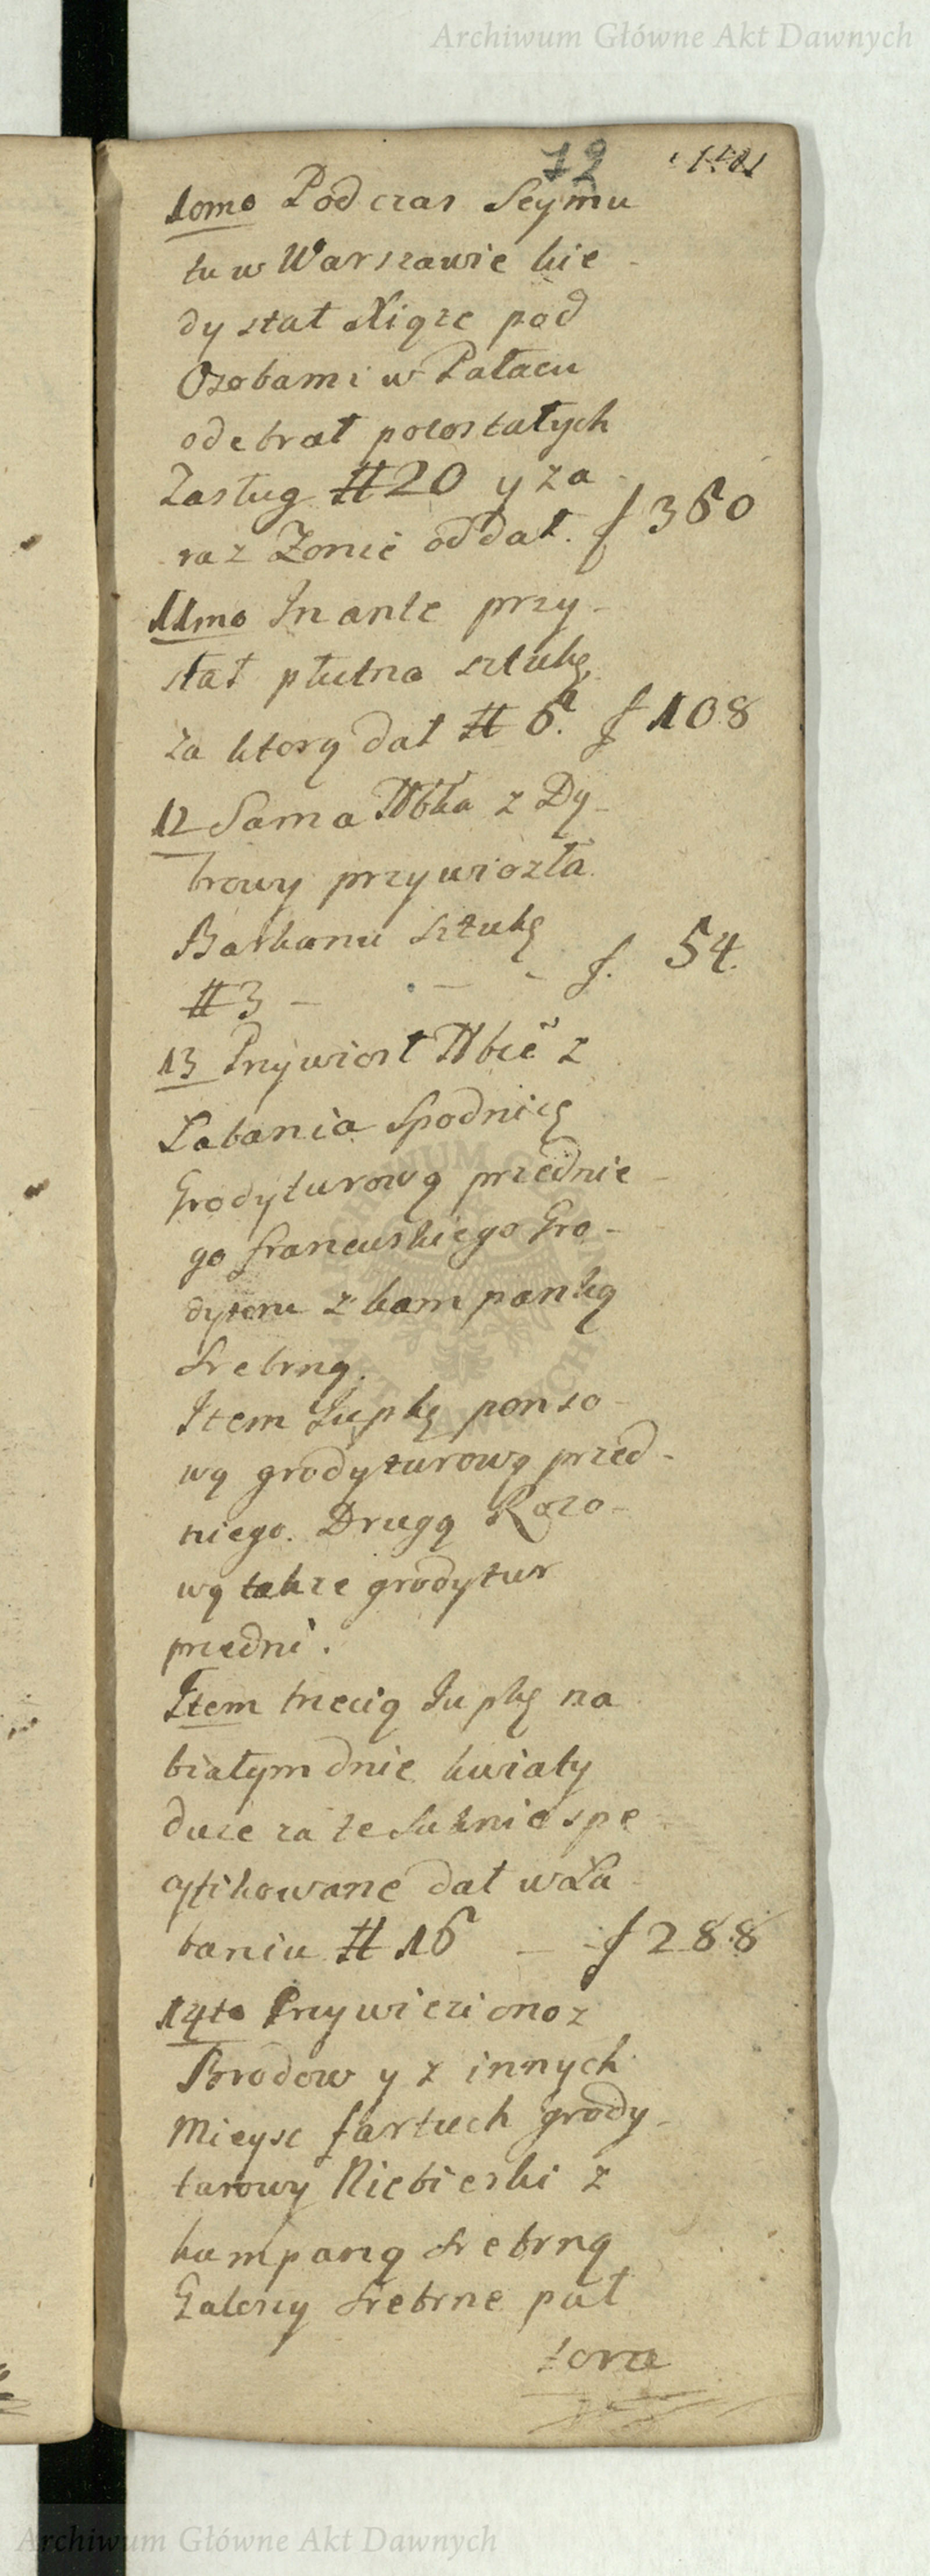 Archiwum Główne Akt Dawnych
72
10mo Podczas Seymu
tu w Warszawie kie-
dy stał Xiąże pod
Osobami w Pałacu
odebrał pozostałych
Zasług # 20 y za-
raz Zonie oddał. f 360
11mo In ante przy-
słał płutna sztukę,
za ktorą dał # 6. f 108
12 Sama z Dy-
browy przywiozła
Barkanu sztukę
# 3 - - - - f. 54.
13 Przywiozł z
Łabania Spodnicę
Grodyturową przednie-
go francuskiego Gro-
dyteru z kampanką
srebrną.
Item Jupkę ponso-
wą grodyturową przed-
niego. Drugą Rozo-
wą takze grodytur
przedni.
Item trzecią Jupkę na
białym dnie kwiaty
duze za te suknie spe
cyfikowane dał w Ła-
baniu # 16 - - f 288
14to Przywieziono z
Brodow y z innych
Mieysc fartuch grody-
turowy Niebieski z
kampaną srebrną
Galony srebrne puł
tora
Archiwum Główne Akt Dawnych